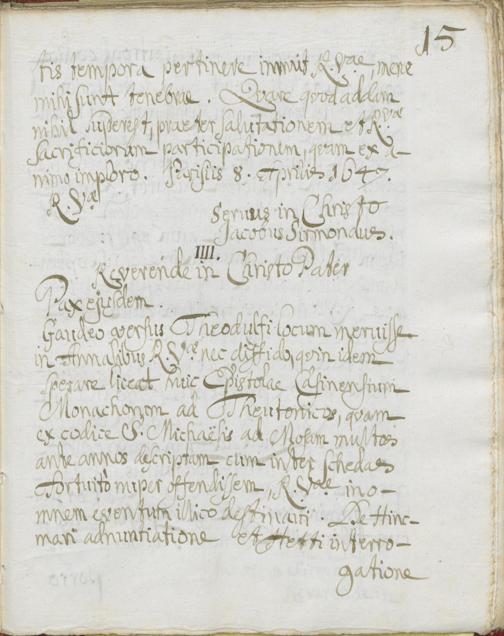 15
tis tempora pertinere innuit R. Vae, mene
mihi sunt tenebrae. Quare quod addam
nihil superest, praeter salutationem et R. Vae
sacrificiorum participationem, quam ex a-
nimo imploro. Parisiis 8. Aprilis 1647.
R. Vae
Servus in Christo
Jacobus Sirmondus.
IIII.
Reverende in Christo Pater
Pax ejusdem.
Gaudeo versus Theodulfi locum meruisse
in Annalibus R. Vae nec diffido, quin idem
sperare liceat huic Epistolae Casinensium
Monachorum ad Theutonicos, quam
ex codice S. Michaëlis ad Mosam multos
ante annos descriptam cum inter schedas
fortuito nuper offendissem, R. Vae in o-
mnem eventum illico destinavi. De Hinc-
mari adnuntiatione et Hetti interro-
gatione